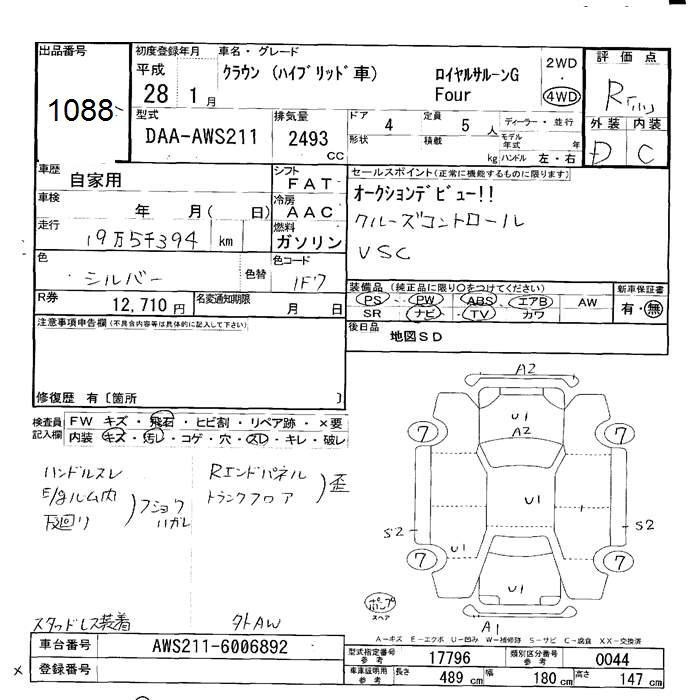 出品番号
1088
初度登録年月
平成
28 1月
車名・グレード
クラウン (ハイブリッド車) ロイヤルサルーンG
Four
2WD
・
4WD
評価点
R
外装 内装
D C
型式
DAA-AWS211
排気量
2493
cc
ドア 4
形状
定員 5 人
積載 kg
ディーラー・並行
モデル年式 年
ハンドル 左・右
車歴 自家用
シフト FAT
車検 年 月( 日)
冷房 AAC
走行 19万5千394 km
燃料 ガソリン
色 シルバー 色替
色コード 1F7
R券 12,710 円
名変通知期限 月 日
セールスポイント(正常に機能するものに限ります)
オークションデビュー!!
クルーズコントロール
VSC
装備品(純正品に限り○をつけてください)
PS・PW・ABS・エアB・AW
SR ナビ・TV カワ
新車保証書
有・無
後日品 地図SD
注意事項申告欄(不具合内容等は具体的に記入して下さい)
修復歴 有〔箇所 〕
検査員記入欄
FW キズ・飛石・ヒビ割・リペア跡・×要
内装・キズ・汚レ・コゲ・穴・スレ・キレ・破レ
ハンドルスレ
E/gルム内
下廻リ
フショク
ハガレ
Rエンドパネル
トランクフロア
歪
スタッドレス装着
外AW
A2
U1
A2
7
7
U1
S2
S2
U1
7
7
U1
A1
ポンプ
スペア
A-キズ E-エクボ U-凹み W-補修跡 S-サビ C-腐食 XX-交換済
車台番号 AWS211-6006892
× 登録番号
型式指定番号
参考
17796
類別区分番号
参考
0044
車庫証明用
参考
長さ 489 cm
幅 180 cm
高さ 147 cm